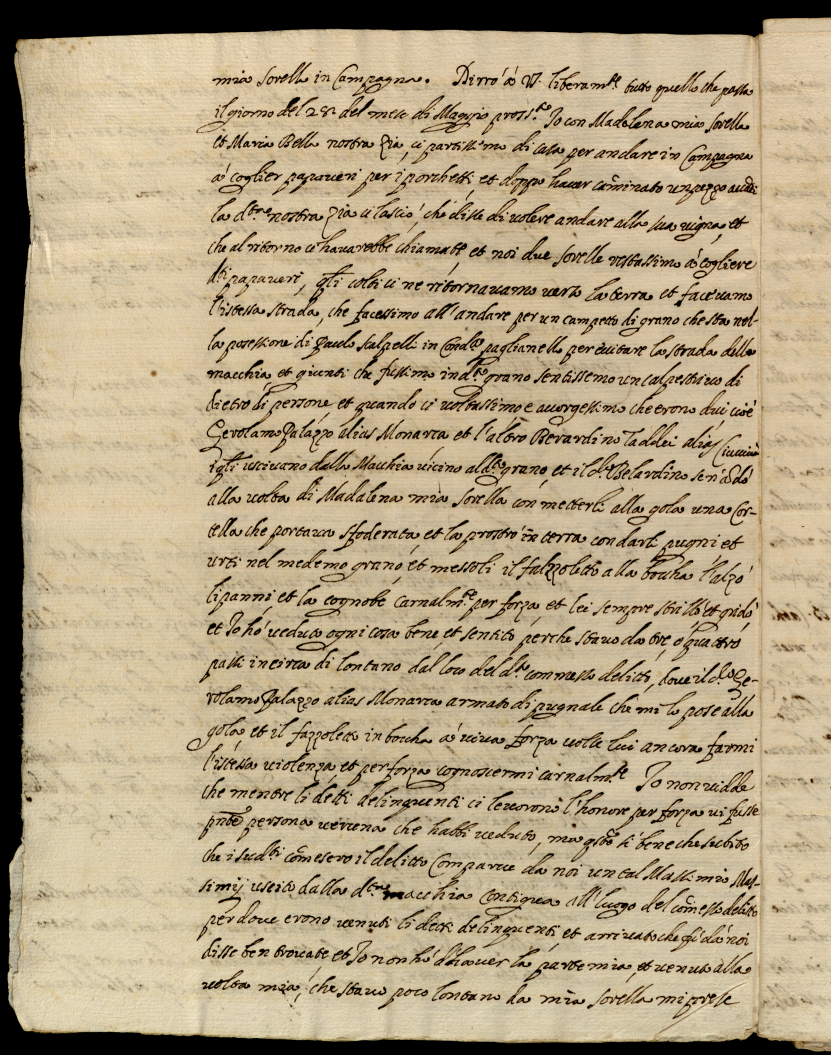 mia sorella in Campagna. Dirrò à V. liberam.te tutto quello che passa
il giorno del 28 del mese di Maggio pross.o Io con Madalena mia sorella
et Maria Bella nostra Zia, ci partissimo di casa per andare in Campagna
à coglier papaveri per i porchetti et doppo haver caminato un pezzo avanti
la d.ta nostra zia ci lasciò, che disse di volere andare alla sua vigna, et
che al ritorno ci haverebbe chiamate et noi due sorelle restassimo à cogliere
d.ti papaveri, q.li colti ci ne ritornavamo verso la terra et facevamo
l'istessa strada, che facessimo all'andare per un campetto di grano che sta nel-
la posessione di Paulo Scalpelli in Cond.a paglianello per evitare la strada della
macchia et giunti che fussimo in d.to grano sentissemo un calpestrivo di
dietro di persone, et quando ci voltassimo e accorgessimo che erono dui cioè
Gerolamo Palazzo alias Monarca et l'altro Berardino Taddei alias Ciuccino
i q.li uscivano della Macchia vicino al d.to grano, et il d.o Belardino se n'andò
alla volta di Madalena mia sorella con metterli alla gola una Cor-
tella che portava sfoderata et la prostrò in terra con darli pugni et
urti nel medemo grano et messoli il fazzoletto alla boccha l'alzò
li panni et la cognobe carnalm.te per forza et lei sempre strillò et gridò
et Io hò veduta ogni cosa bene et sentito perche stavo da tre, ò quattro
passi incirca di lontano dal loco del d.to commesso delitto, dove il d.o Ge-
rolamo Palazzo alias Monarca armato di pugnale che mi lo pose alla
gola, et il fazzoletto in boccha à viva forza volle lui ancora farmi
l'istessa violenza et per forza cognoscermi carnalm.te Io non vidde
che mentre li detti delinquenti ci levorono l'honore per forza vi fusse
pnte persona veruna che habbi veduto, ma q.sto sì bene che subito
che i sud.ti comesero il delitto Comparve da noi un tal Massimio Mas-
simij uscito dalla d.ta macchia contigua all'luogo del comesso delitto
per dove erono venuti li detti delinquenti et arrivato che fù da noi
disse ben trovate et Io non hò d'haver la parte mia, et venuto alla
volta mia, che stavo poco lontano da mia sorella mi prese